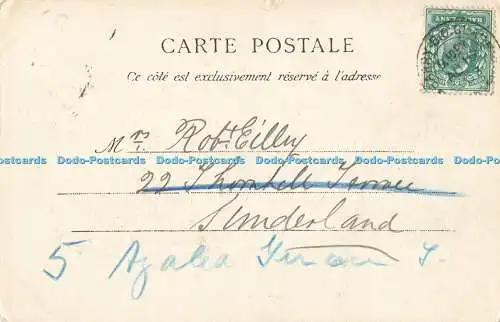 CARTE POSTALE
Ce côté est exclusivement réservé à l'adresse
Mrs. Robt Eilley
Dodo-Postcards Dodo-Postcards Dodo-Postcards Dodo-Postcards Dodo-Postcards
22 Thornhill Terrace
Sunderland
5 Azalea Terrace S.